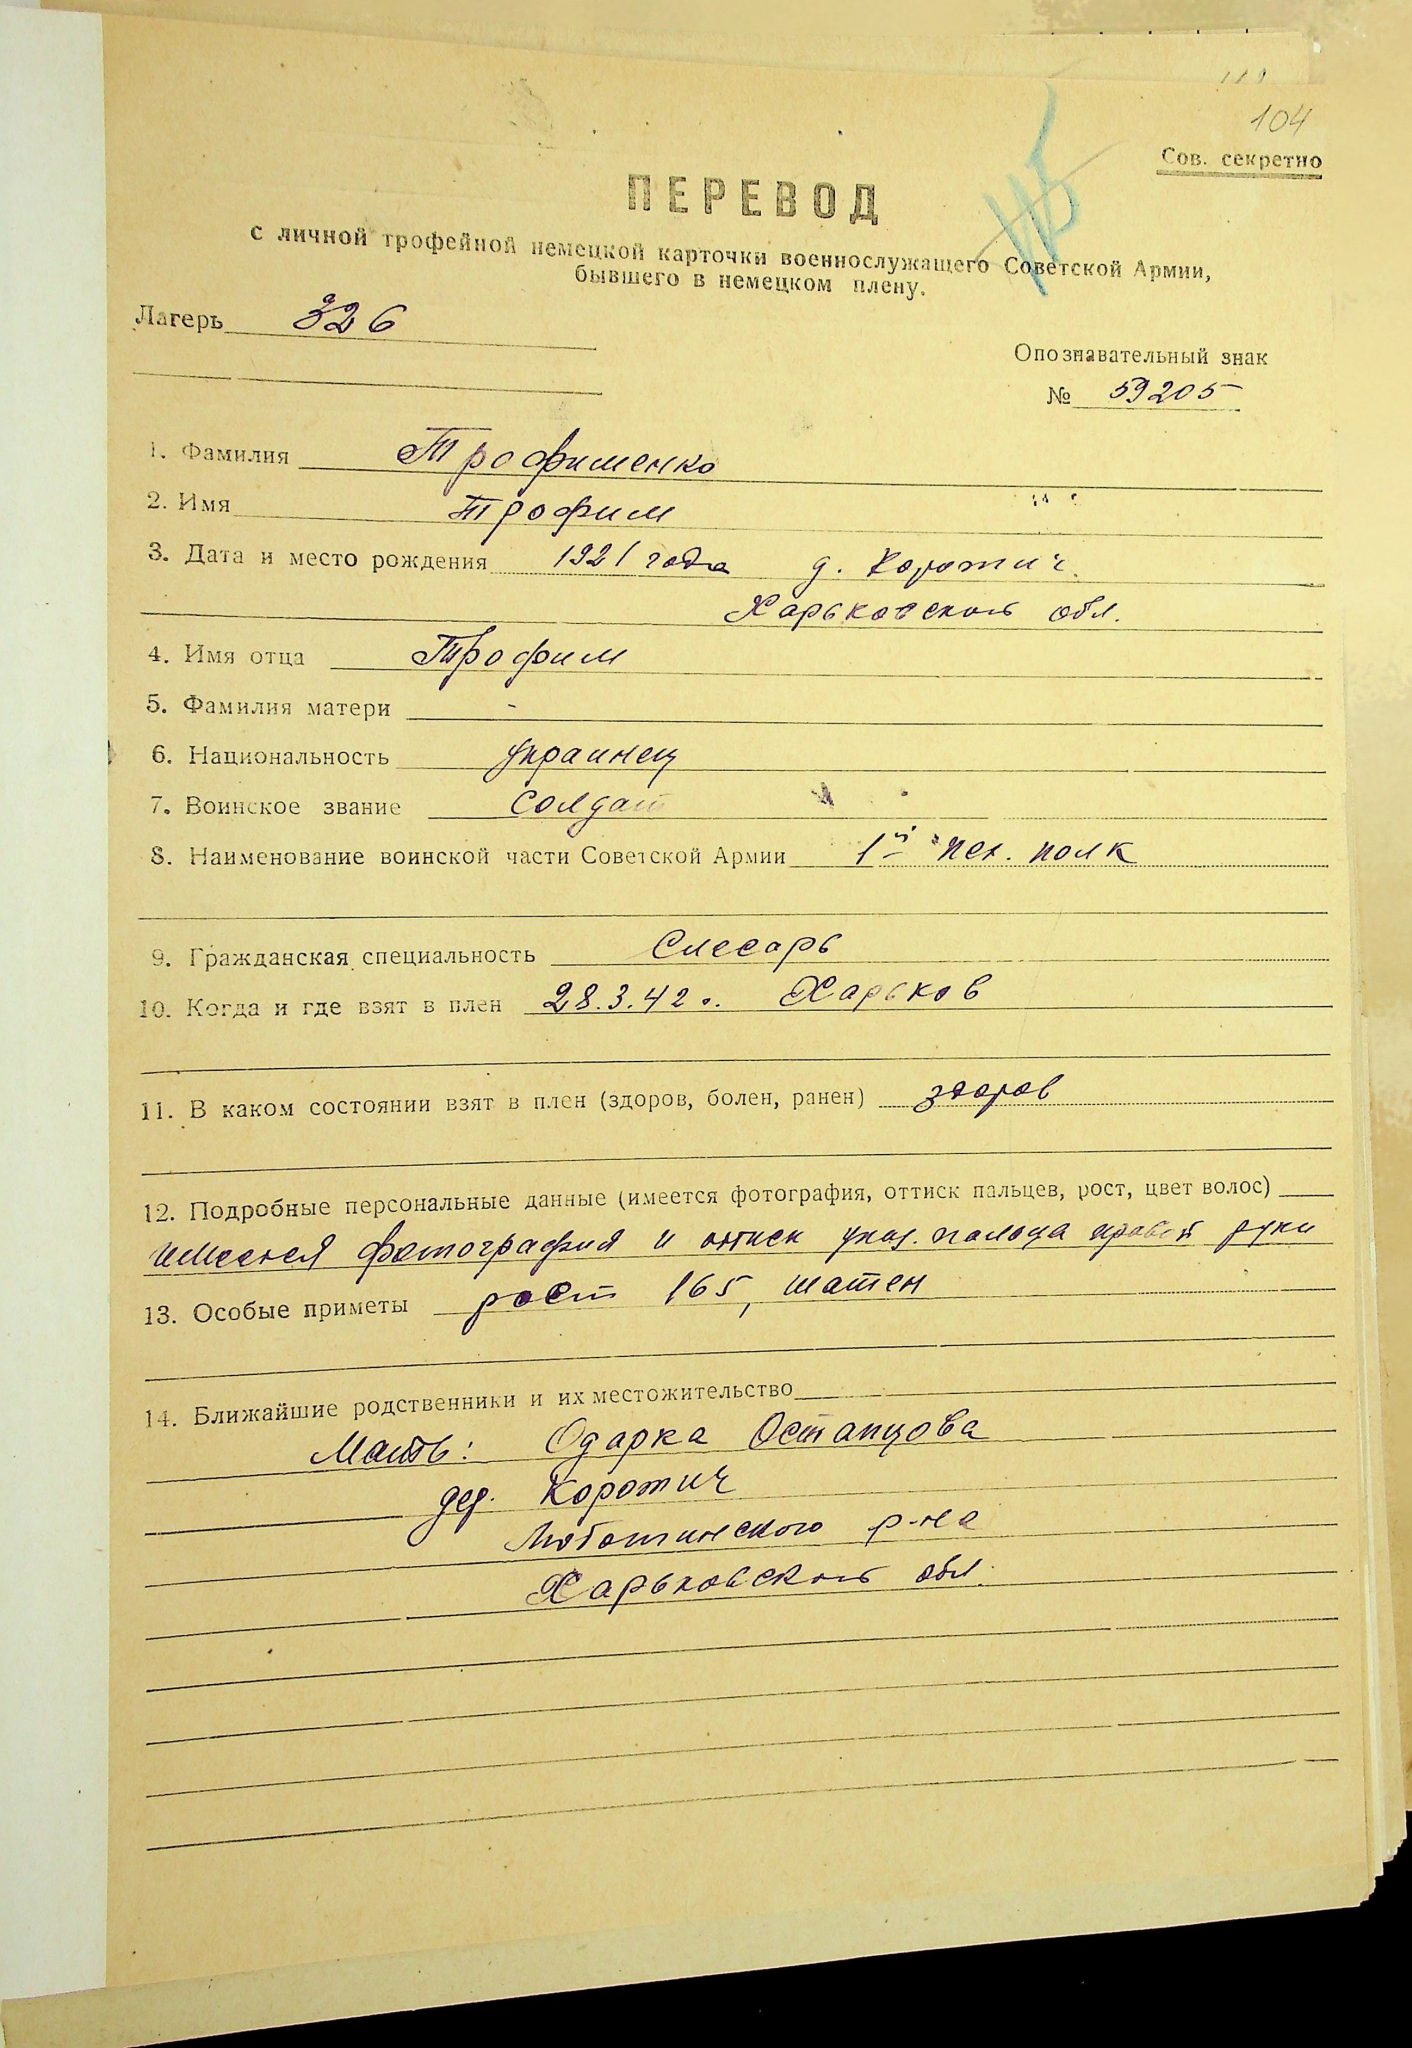 104
Сов. секретно
ПЕРЕВОД
с личной трофейной немецкой карточки военнослужащего Советской Армии,
бывшего в немецком плену.
Лагерь 326
Опознавательный знак
№ 59205
1. Фамилия Трофименко
2. Имя Трофим
3. Дата и место рождения 1921 года д. Коротич
Харьковской обл.
4. Имя отца Трофим
5. Фамилия матери -
6. Национальность украинец
7. Воинское звание солдат
8. Наименование воинской части Советской Армии 1й пех. полк
9. Гражданская специальность Слесарь
10. Когда и где взят в плен 28.3.42 г. Харьков
11. В каком состоянии взят в плен (здоров, болен, ранен) здоров
12. Подробные персональные данные (имеется фотография, оттиск пальцев, рост, цвет волос)
имеется фотография и оттиск указ. пальца правой руки
13. Особые приметы рост 165, шатен
14. Ближайшие родственники и их местожительство
Мать: Одарка Остапцова
дер. Коротич
Люботинского р-на
Харьковской обл.